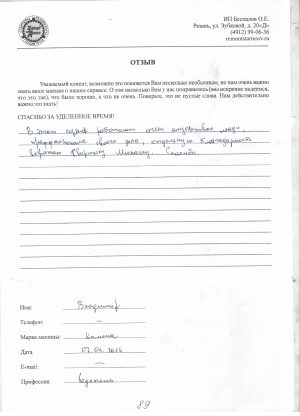 ИП Беспалов О.Е.
Рязань, ул. Зубковой, д. 20«Д»
(4912) 99-06-36
remontstarterov.ru
ОТЗЫВ
Уважаемый клиент, возможно это покажется Вам несколько необычным, но нам очень важно
знать ваше мнение о нашем сервисе. О том насколько Вам у нас понравилось (мы искренне надеемся,
что это так), что было хорошо, а что не очень. Поверьте, это не пустые слова. Нам действительно
важно это знать!
СПАСИБО ЗА УДЕЛЕННОЕ ВРЕМЯ!
В этом сервисе работают очень отзывчивые люди,
профессионалы своего дела, отдельную благодарность
выражаю Михаилу. Спасибо.
Имя: Владимир
Телефон: –
Марка машины: Калина
Дата 07.04.2016
E-mail: –
Профессия: водитель
89